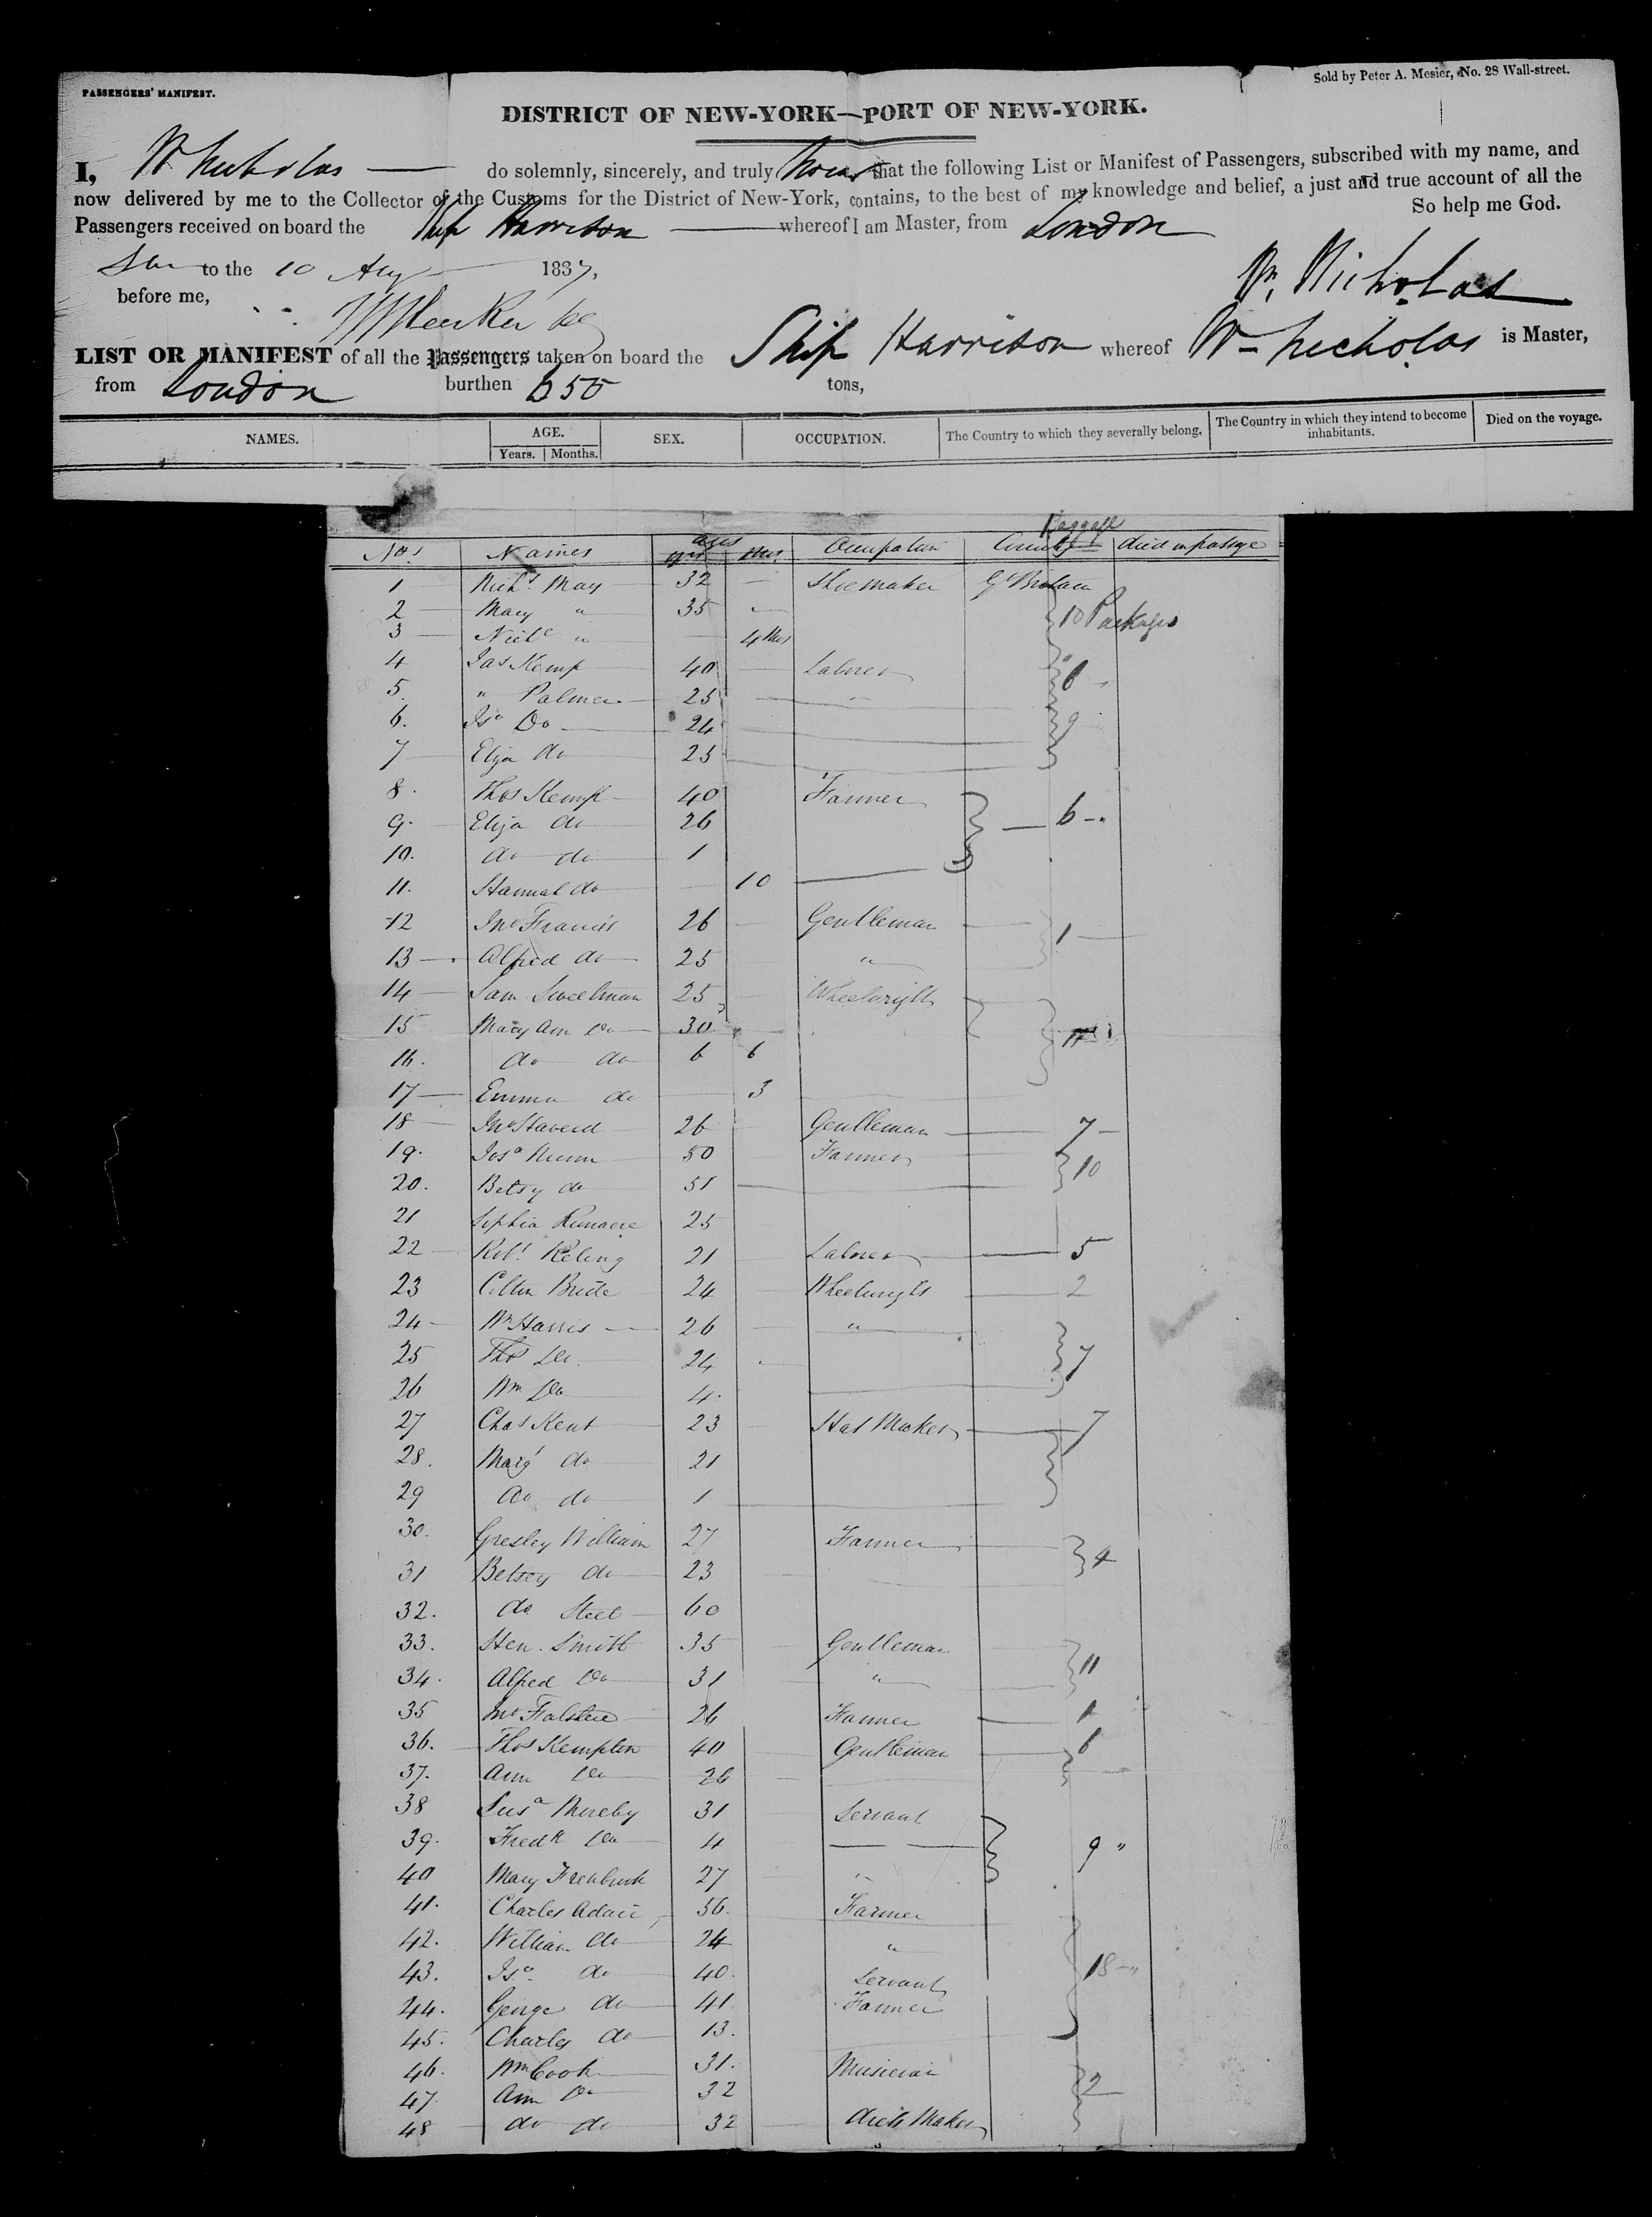 PASSENGERS' MANIFEST.
Sold by Peter A. Mesier, No. 28 Wall-street.
DISTRICT OF NEW-YORK—PORT OF NEW-YORK.
I, Wm Nicholas — do solemnly, sincerely, and truly swear that the following List or Manifest of Passengers, subscribed with my name, and
now delivered by me to the Collector of the Customs for the District of New-York, contains, to the best of my knowledge and belief, a just and true account of all the
Passengers received on board the Ship Harrison — whereof I am Master, from London
So help me God.
to the 10 Aug 1837,
Wm Nicholas
before me,
LIST OR MANIFEST of all the Passengers taken on board the Ship Harrison whereof Wm Nicholas is Master,
from London burthen tons,
NAMES. AGE. Years. Months. SEX. OCCUPATION. The Country to which they severally belong. The Country in which they intend to become inhabitants. Died on the voyage.
Baggage
Nos. Names ages yrs mos. Occupation Country died on passage
1 Richd May 32 — Shoemaker Gt Britain
2 Mary " 35 10 Packages
3 " 4 Mos
4 Jas Kemp 40 Laborer 6
5. " Palmer 25 "
6. Isa Do 24
7 Eliza do 25
8. Thos Kemp 40 Farmer
9. Eliza do 26 6 "
10. do do 1
11. Hannah do 10
12 Jno Francis 26 Gentleman 1
13 Alfred do 25 "
14 Sam Sweetman 25 Wheelwright
15 Mary Ann Do 30
16. do do 6 6
17 Emma do 3
18 Jno Staverd 26 Gentleman 7
19. Josa Nunn 50 Farmer 10
20. Betsy do 51
21 Sophia 25
22 Robt Keling 21 Laborer 5
23 Bride 24 Wheelwright 2
24 Wm Harris 26 "
25 Thos Do 24 7
26 Wm Do 4
27 Chas Kent 23 Hat Maker 7
28. Margt do 21
29 do do 1
30. Gresley William 27 Farmer 4
31 Betsey do 23
32. do Steel 60
33. Hen. Smith 35 Gentleman 11
34. Alfred Do 31 "
35 Jno 26 Farmer 1
36. Thos Kempton 40 Gentleman 6
37. Ann Do 26
38 Susa Moreby 31 Servant
39. Fredk Do 4 — — 9 "
40 Mary 27 "
41. Charles Adair 56. Farmer
42. William do 24 "
43. Isa do 40. Servant 18 "
44. George do 41 Farmer
45. Charles do 13.
46. Wm Cook 31. Musician 2
47. Ann Do 32
48 do do 32 Maker